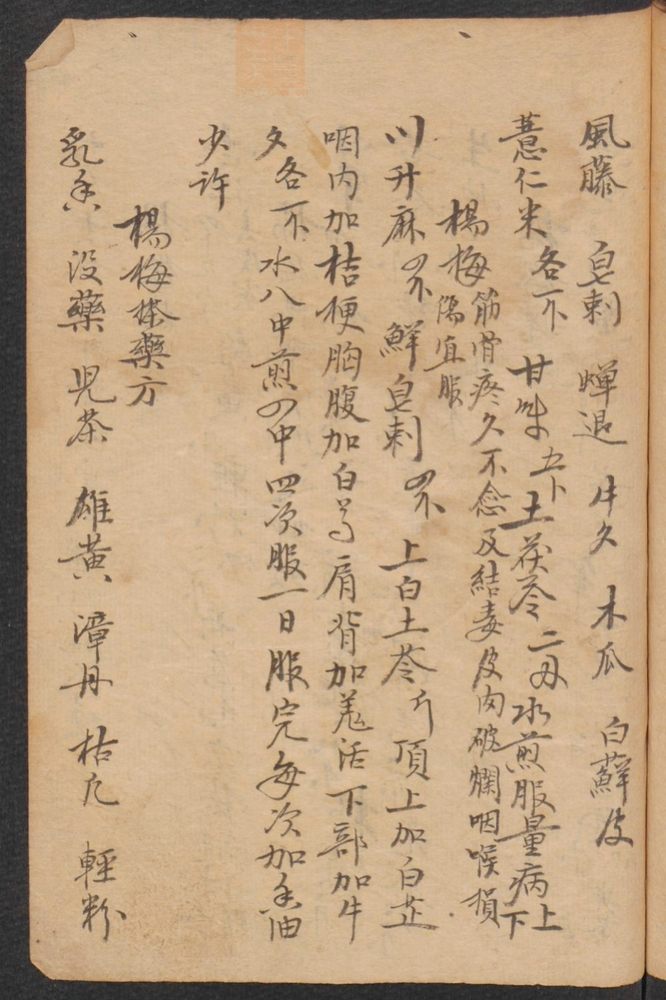 風藤 皂刺 蟬退 牛夕 木瓜 白蘚皮
薏仁米各一不 甘草五卜 土茯苓二两水煎服量病上下
楊梅瘡宜服 筋骨疼久不愈及結毒皮肉破爛咽喉損
川升麻四不 鮮皂刺四不 上白土苓斤 頂上加白芷
咽内加桔梗胸腹加白芍肩背加羗活下部加牛
夕各一不 水八中煎四中四次服一日服完每次加香油
少許
楊梅搽藥方
乳香 沒藥 児茶 雄黃 漳丹 枯凡 輕粉